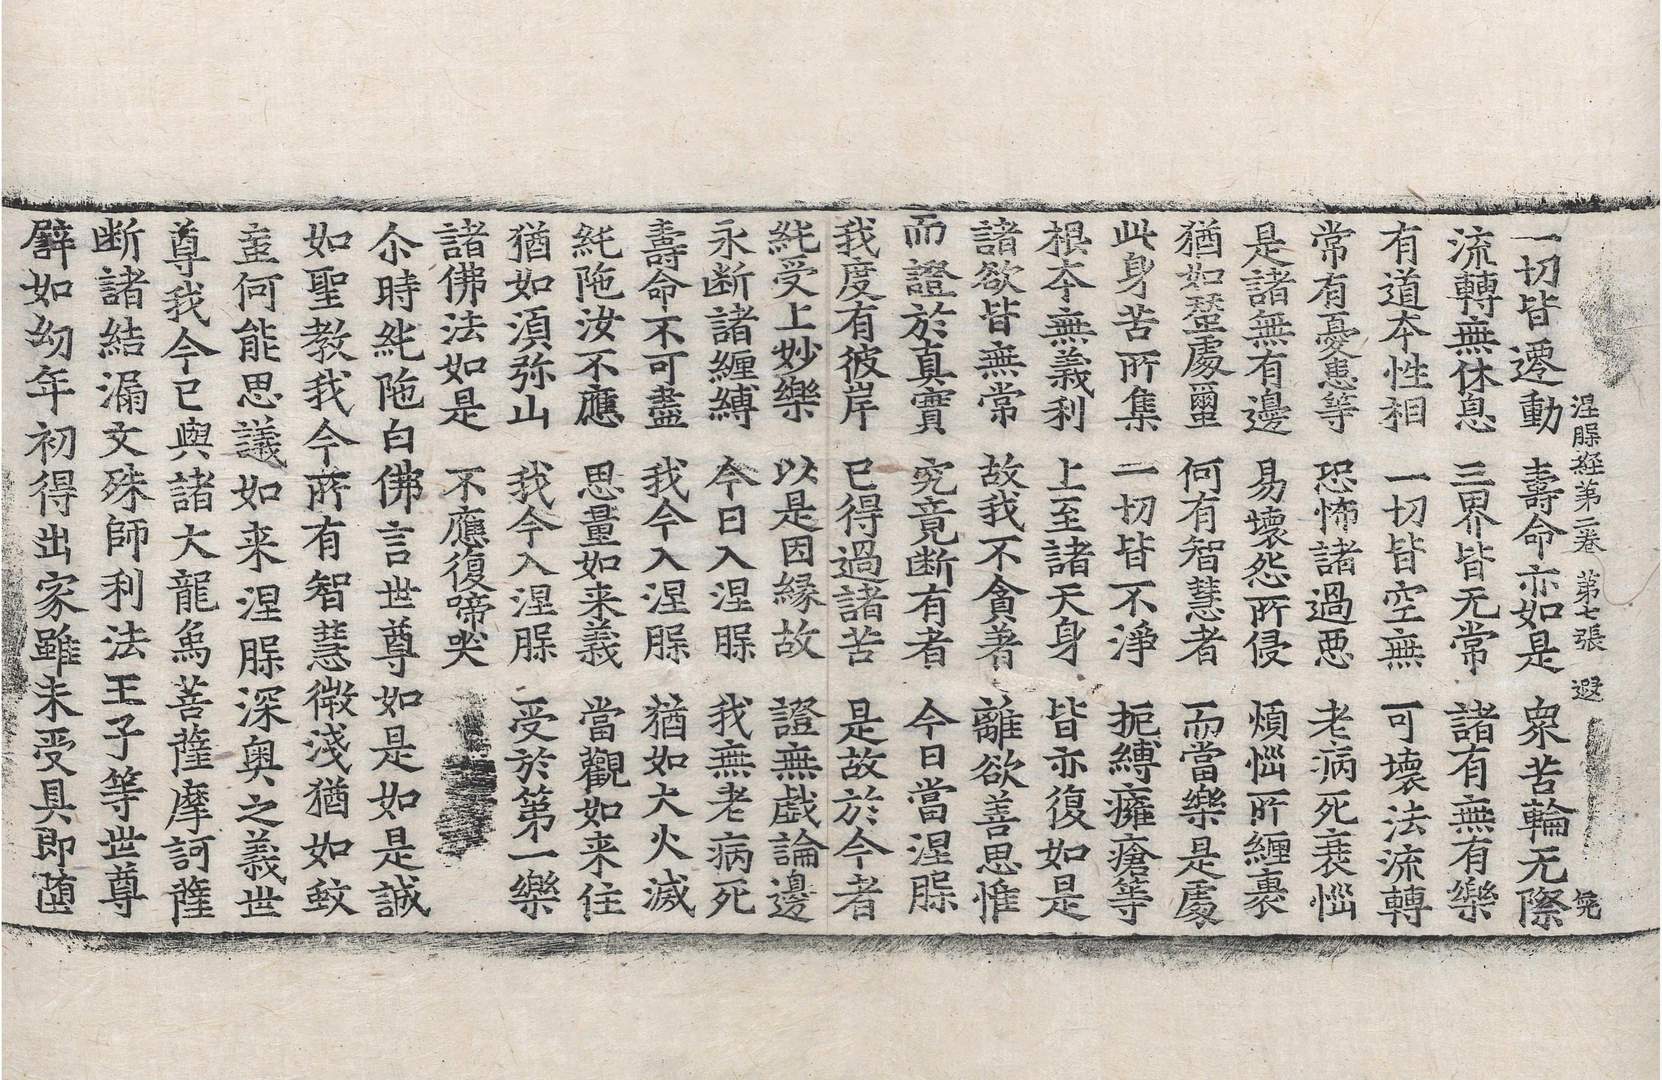 涅脲經第二卷 第七張 遐 㝹
一切皆遷動 壽命亦如是 衆苦輪无際
流轉無休息 三界皆无常 諸有無有樂
有道夲性相 一切皆空無 可壞法流轉
常有憂患等 恐怖諸過悪 老病死衰惱
是諸無有邊 易壞怨所侵 煩惱所纏裹
猶如蠶處蠒 何有智慧者 而當樂是處
此身苦所集 一切皆不淨 扼縛癰瘡等
根夲無義利 上至諸天身 皆亦復如是
諸欲皆無常 故我不貪著 離欲善思惟
而證於真實 究竟断有者 今日當涅脲
我度有彼岸 已得過諸苦 是故於今者
純受上妙樂 以是因縁故 證無戯論邊
永断諸纏縛 今日入涅脲 我無老病死
壽命不可盡 我今入涅脲 猶如大火滅
純陁汝不應 思量如来義 當觀如来住
猶如湏弥山 我今入涅脲 受於第一樂
諸佛法如是 不應復啼哭
尒時純陁白佛言世尊如是如是誠
如聖教我今所有智慧微淺猶如蚊
䖟何能思議如来涅脲深奥之義世
尊我今已與諸大龍烏菩薩摩訶薩
断諸結漏文殊師利法王子等世尊
譬如㓜年初得出家雖未受具即堕